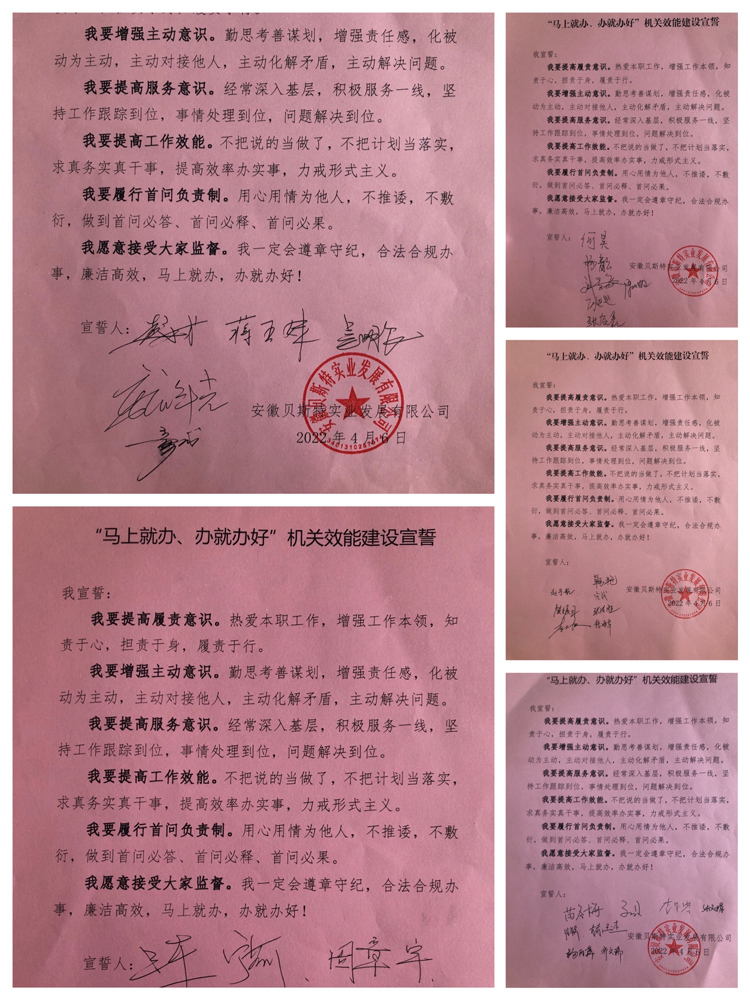 我要增强主动意识。勤思考善谋划，增强责任感，化被
动为主动，主动对接他人，主动化解矛盾，主动解决问题。
我要提高服务意识。经常深入基层，积极服务一线，坚
持工作跟踪到位，事情处理到位，问题解决到位。
我要提高工作效能。不把说的当做了，不把计划当落实，
求真务实真干事，提高效率办实事，力戒形式主义。
我要履行首问负责制。用心用情为他人，不推诿，不敷
衍，做到首问必答、首问必释、首问必果。
我愿意接受大家监督。我一定会遵章守纪，合法合规办
事，廉洁高效，马上就办，办就办好！
宣誓人：
安徽贝斯特实业发展有限公司
2022年4月6日
“马上就办、办就办好”机关效能建设宣誓
我宣誓：
我要提高履责意识。热爱本职工作，增强工作本领，知
责于心，担责于身，履责于行。
我要增强主动意识。勤思考善谋划，增强责任感，化被
动为主动，主动对接他人，主动化解矛盾，主动解决问题。
我要提高服务意识。经常深入基层，积极服务一线，坚
持工作跟踪到位，事情处理到位，问题解决到位。
我要提高工作效能。不把说的当做了，不把计划当落实，
求真务实真干事，提高效率办实事，力戒形式主义。
我要履行首问负责制。用心用情为他人，不推诿，不敷
衍，做到首问必答、首问必释、首问必果。
我愿意接受大家监督。我一定会遵章守纪，合法合规办
事，廉洁高效，马上就办，办就办好！
宣誓人：
“马上就办、办就办好”机关效能建设宣誓
我宣誓：
我要提高履责意识。热爱本职工作，增强工作本领，知
责于心，担责于身，履责于行。
我要增强主动意识。勤思考善谋划，增强责任感，化被
动为主动，主动对接他人，主动化解矛盾，主动解决问题。
我要提高服务意识。经常深入基层，积极服务一线，坚
持工作跟踪到位，事情处理到位，问题解决到位。
我要提高工作效能。不把说的当做了，不把计划当落实，
求真务实真干事，提高效率办实事，力戒形式主义。
我要履行首问负责制。用心用情为他人，不推诿，不敷
衍，做到首问必答、首问必释、首问必果。
我愿意接受大家监督。我一定会遵章守纪，合法合规办
事，廉洁高效，马上就办，办就办好！
宣誓人：
安徽贝斯特实业发展有限公司
2022年4月6日
“马上就办、办就办好”机关效能建设宣誓
我宣誓：
我要提高履责意识。热爱本职工作，增强工作本领，知
责于心，担责于身，履责于行。
我要增强主动意识。勤思考善谋划，增强责任感，化被
动为主动，主动对接他人，主动化解矛盾，主动解决问题。
我要提高服务意识。经常深入基层，积极服务一线，坚
持工作跟踪到位，事情处理到位，问题解决到位。
我要提高工作效能。不把说的当做了，不把计划当落实，
求真务实真干事，提高效率办实事，力戒形式主义。
我要履行首问负责制。用心用情为他人，不推诿，不敷
衍，做到首问必答、首问必释、首问必果。
我愿意接受大家监督。我一定会遵章守纪，合法合规办
事，廉洁高效，马上就办，办就办好！
宣誓人：
安徽贝斯特实业发展有限公司
2022年4月6日
“马上就办、办就办好”机关效能建设宣誓
我宣誓：
我要提高履责意识。热爱本职工作，增强工作本领，知
责于心，担责于身，履责于行。
我要增强主动意识。勤思考善谋划，增强责任感，化被
动为主动，主动对接他人，主动化解矛盾，主动解决问题。
我要提高服务意识。经常深入基层，积极服务一线，坚
持工作跟踪到位，事情处理到位，问题解决到位。
我要提高工作效能。不把说的当做了，不把计划当落实，
求真务实真干事，提高效率办实事，力戒形式主义。
我要履行首问负责制。用心用情为他人，不推诿，不敷
衍，做到首问必答、首问必释、首问必果。
我愿意接受大家监督。我一定会遵章守纪，合法合规办
事，廉洁高效，马上就办，办就办好！
宣誓人：
安徽贝斯特实业发展有限公司
2022年4月6日